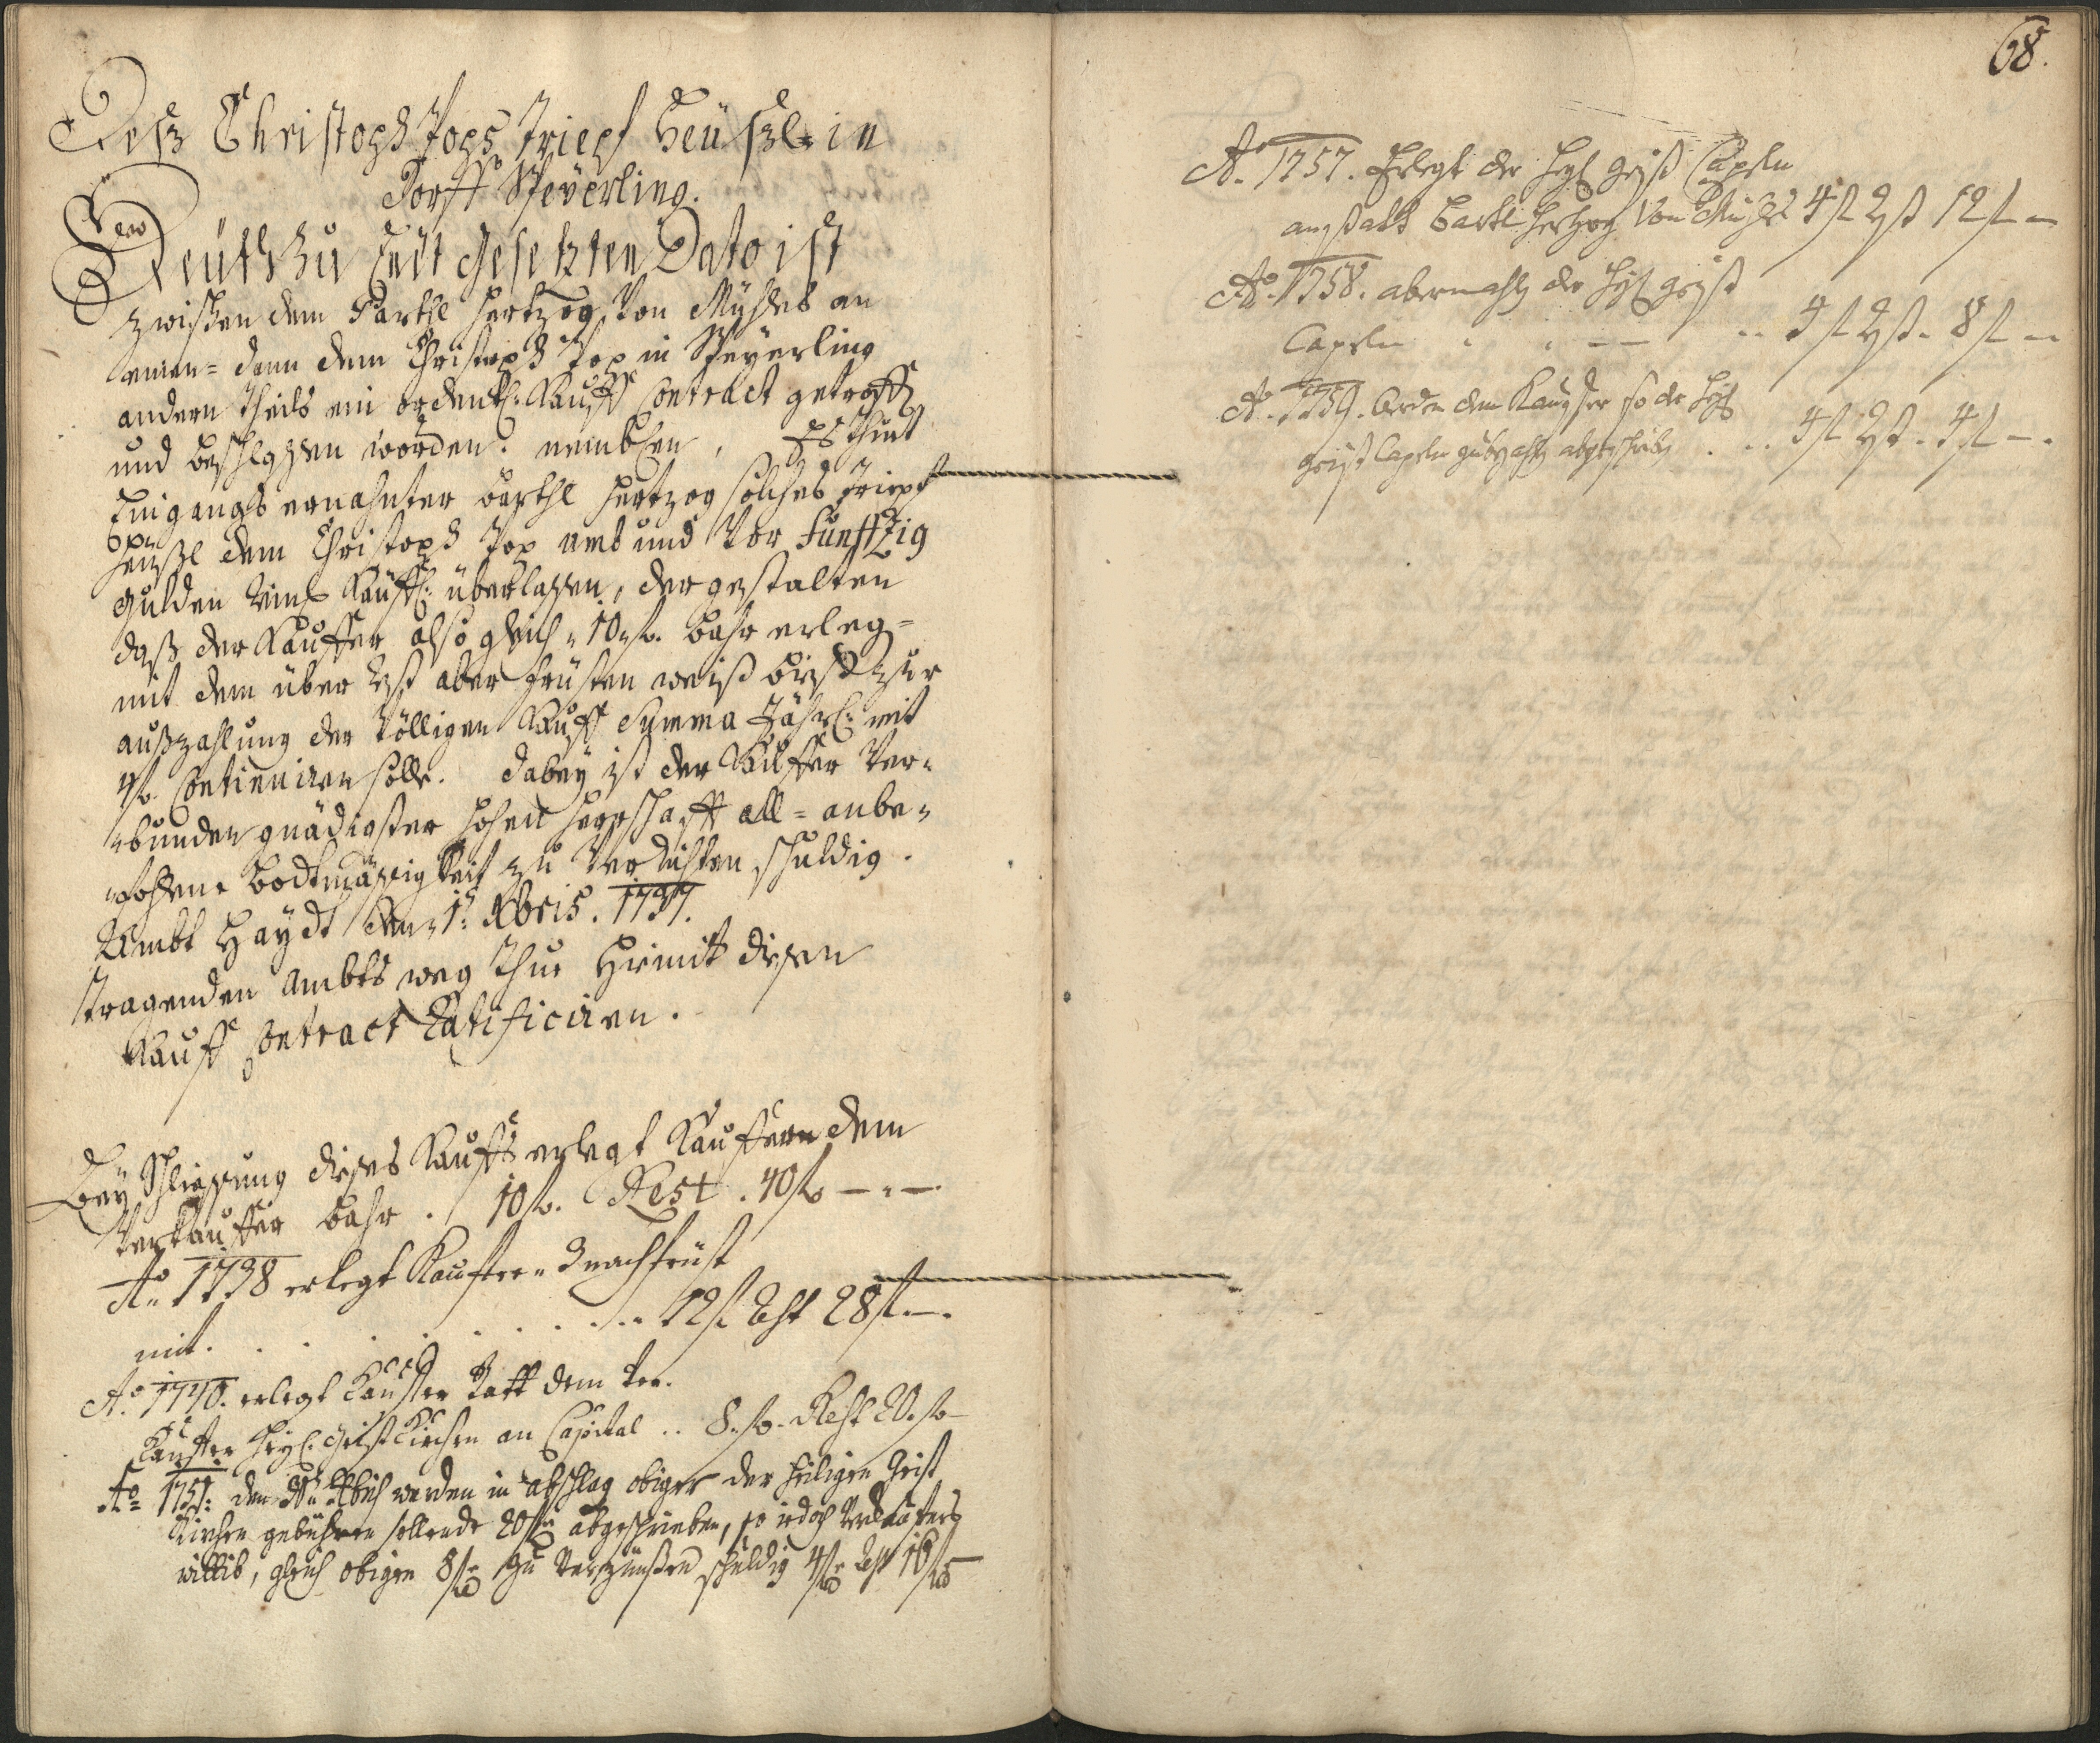 Deß Christoph Pops Triepf Heüßl in
Dorff Speÿerling.
Heuth zu Endt Gesetzten Dato ist
zwischen dem Barthl Hertzog Von Mÿhles an
einen= dann dem Christoph Pop in Speÿerling
andern Theils ein ordentl: Kauff Contract getroff
und beschlossen worden. nemblichen, Es thuet
Eingangs ernahnter Barthl Hertzog solches Triepf
Heußl dem Christoph Pop umb und Vor Funffzig
Gulden Rein Käuffl: überlassen, dergestalten
daß der Kauffer also gleich 10 fl. bahr erleg=
mit dem über Rest aber fristen weiß bieß zur
außzahlung der Völligen Kauff Summa Jährl: mit
4 fl. Continuiren solle. Dabeÿ ist der Kauffer Ver=
=bunden gnädigster hohen Herrschafft all= anbe=
=fohlene bodtmässigkeit zu Verrichten schuldig.
Ambt Haÿdt den 1: Xbris. 1737.
Tragenden Ambts weg Thue Hiemit diesen
Kauff Contract Ratificiren.
Beÿ Schliessung dieses Kauffs erlegt Kauffern dem
Verkauffer bahr. 10 fl. Rest. 40 fl —"—
Ao 1738 erlegt Kauffer 3 nachfrist
mit . . . . . . . . . 12 fl Rest 28 fl —.
Ao. 1740. erlegt Kauffer statt dem Ver=
Kauffer Heÿl: Geist Kirchen an Capital .. 8. fl. Rest 20. fl
Ao= 1751: den Xbris werden in abschlag obiger der Heiligen Geist
Kirchen gebühren sollende 20 fl abgeschrieben, so jedoch Verkauffers
wittib, gleich obigen 8 fl zu Verzünßen schuldig 4 fl Rest 16 fl
68.
Ao. 1757. Erlegt der Heÿl geist Capeln
anstatt Barthl Hertzog Von Mühles 4 fl Rest 12 fl —
Ao. 1758. abermahls der Heÿl geist
Capeln " " — — .. 4 fl Rest. 8 fl —
Ao. 1759. werden dem Kauffer so der Heÿl
geist Capeln abgeschrieben . .. 4 fl Rest. 4 fl —.